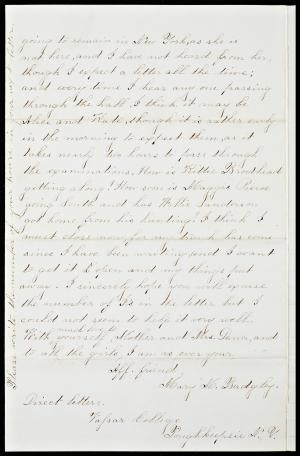 going to remain in New York, as she is
not here, and I have not heard from her,
though I expect a letter all the time;
and every time I hear any one passing
through the hall I think it may be
Alice and Kate, though it is rather early
in the morning to expect them, as it
takes nearly two hours to pass through
the examinations. How is Kittie
getting along? How soon is Maggie Pierce
going South and has Willie
got home from his hunting? I think I
must close now, for my trunk has come
since I have been writing and I want
to get it open and my things put
away. I sincerely hope you will excuse
the number of I's in the letter but I
could not seem to help it very well.
With much love to yourself, Mother and Mrs. and
to all the girls, I am as ever your
Aff. friend,
Mary H.
Direct letters.
Vassar College
Poughkeepsie N. Y.
Please write the number of your house in your next letter